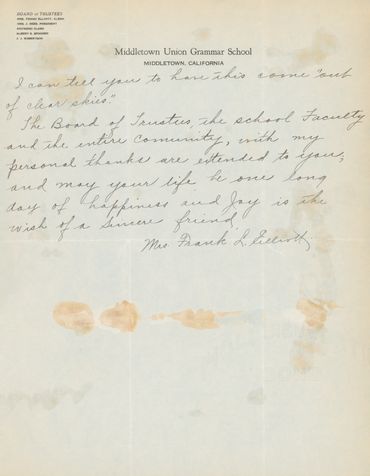 BOARD OF TRUSTEES
MRS. FRANK ELLIOTT, CLERK
ALBERT E. BROOKINS
J. J. ROBERTSON
Middletown Union Grammar School
MIDDLETOWN, CALIFORNIA
I can tell you to have this come "out
of clear skies."
The Board of Trustees, the school Faculty
and the entire Comunity, with my
personal thanks are extended to you,
and may your life be one long
day of happiness and Joy is the
wish of a sincere friend.
Mrs. Frank L. Elliott.